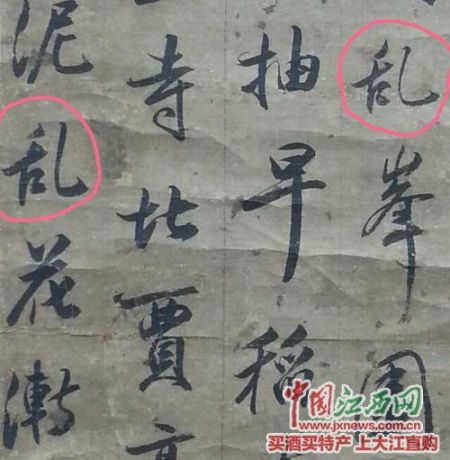 乱峯圍
抽早稻
寺北賈
泥乱花漸
中國江西网
www.jxnews.com.cn
买酒买特产 上大江直购